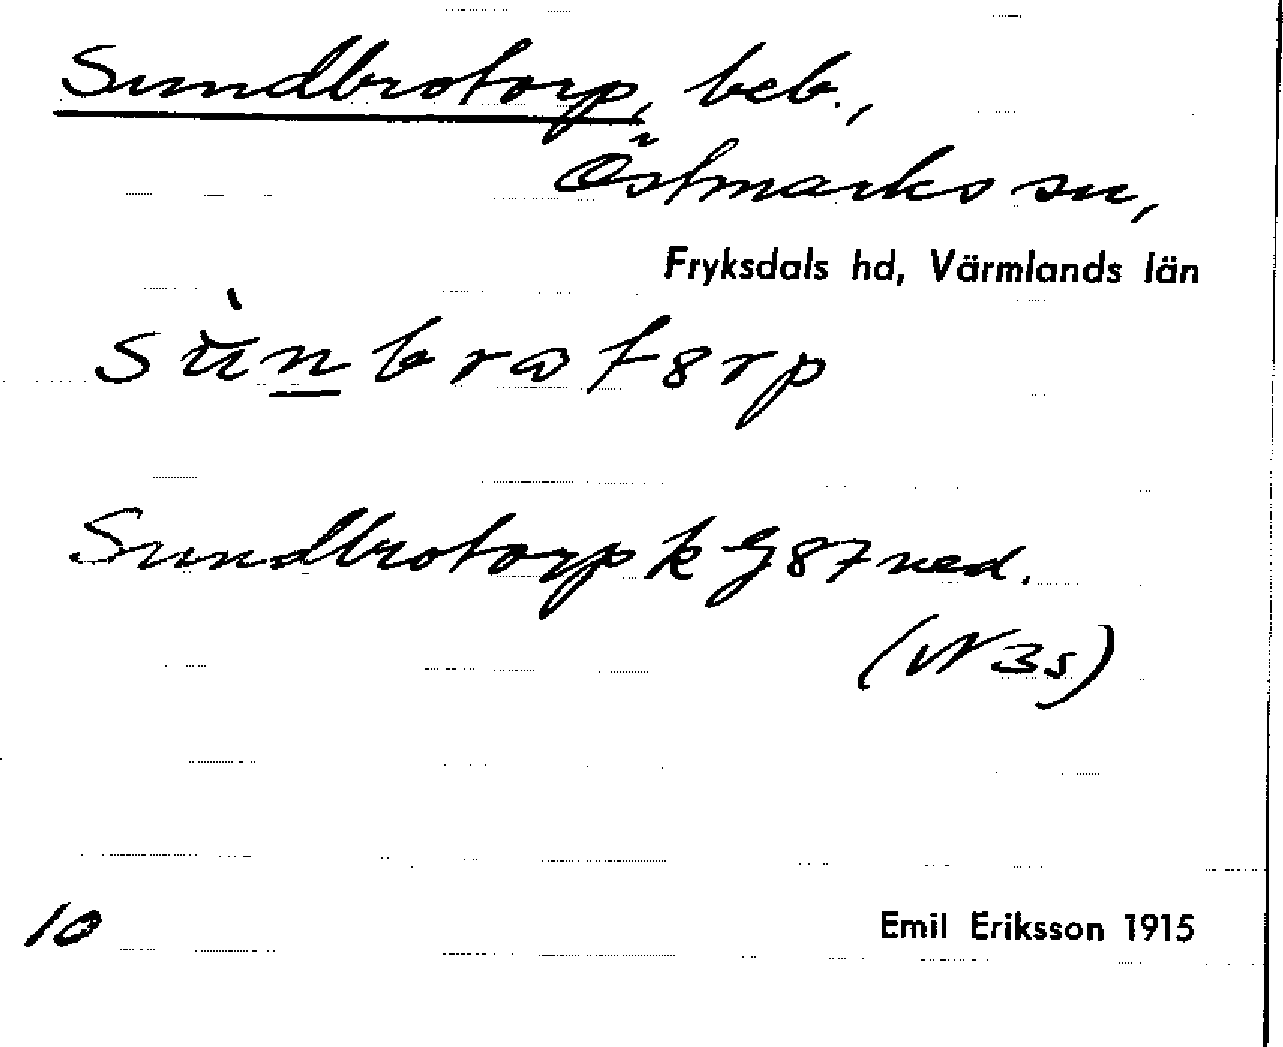 Sundbrotorp, beb.,
Östmarks sn,
Fryksdals hd, Värmlands län
sùnbrotorp
Sundbrotorp k G 87 ned.
(W 35)
10
Emil Eriksson 1915